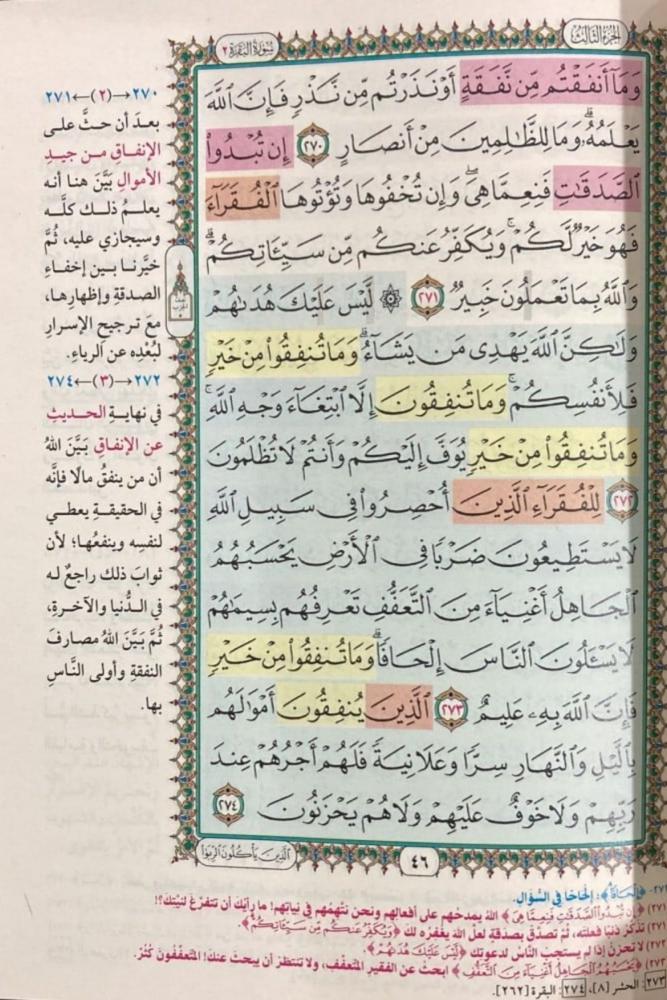 الجزء الثالث
سورة البقرة ٢
وَمَآ أَنفَقْتُم مِّن نَّفَقَةٍ أَوْ نَذَرْتُم مِّن نَّذْرٍ فَإِنَّ ٱللَّهَ
يَعْلَمُهُۥ ۗ وَمَا لِلظَّـٰلِمِينَ مِنْ أَنصَارٍ ٢٧٠ إِن تُبْدُوا۟
ٱلصَّدَقَـٰتِ فَنِعِمَّا هِىَ ۖ وَإِن تُخْفُوهَا وَتُؤْتُوهَا ٱلْفُقَرَآءَ
فَهُوَ خَيْرٌ لَّكُمْ ۚ وَيُكَفِّرُ عَنكُم مِّن سَيِّـَٔاتِكُمْ ۗ
وَٱللَّهُ بِمَا تَعْمَلُونَ خَبِيرٌ ٢٧١ ۞ لَّيْسَ عَلَيْكَ هُدَىٰهُمْ
وَلَـٰكِنَّ ٱللَّهَ يَهْدِى مَن يَشَآءُ ۗ وَمَا تُنفِقُوا۟ مِنْ خَيْرٍ
فَلِأَنفُسِكُمْ ۚ وَمَا تُنفِقُونَ إِلَّا ٱبْتِغَآءَ وَجْهِ ٱللَّهِ ۚ
وَمَا تُنفِقُوا۟ مِنْ خَيْرٍ يُوَفَّ إِلَيْكُمْ وَأَنتُمْ لَا تُظْلَمُونَ
٢٧٢ لِلْفُقَرَآءِ ٱلَّذِينَ أُحْصِرُوا۟ فِى سَبِيلِ ٱللَّهِ
لَا يَسْتَطِيعُونَ ضَرْبًا فِى ٱلْأَرْضِ يَحْسَبُهُمُ
ٱلْجَاهِلُ أَغْنِيَآءَ مِنَ ٱلتَّعَفُّفِ تَعْرِفُهُم بِسِيمَـٰهُمْ
لَا يَسْـَٔلُونَ ٱلنَّاسَ إِلْحَافًا ۗ وَمَا تُنفِقُوا۟ مِنْ خَيْرٍ
فَإِنَّ ٱللَّهَ بِهِۦ عَلِيمٌ ٢٧٣ ٱلَّذِينَ يُنفِقُونَ أَمْوَٰلَهُم
بِٱلَّيْلِ وَٱلنَّهَارِ سِرًّا وَعَلَانِيَةً فَلَهُمْ أَجْرُهُمْ عِندَ
رَبِّهِمْ وَلَا خَوْفٌ عَلَيْهِمْ وَلَا هُمْ يَحْزَنُونَ ٢٧٤
٤٦
الذين يأكلون الربوا
٢٧٠→(٢)←٢٧١
بعدَ أن حثَّ على
الإنفاقِ من جيدِ
الأموالِ بَيَّنَ هنا أنه
يعلمُ ذلك كلَّه
وسيجازي عليه، ثُمَّ
خيَّرنا بين إخفاءِ
الصدقةِ وإظهارِها،
معَ ترجيحِ الإسرارِ
لبُعْدِه عن الرياءِ.
٢٧٢→(٣)←٢٧٤
في نهايةِ الحديثِ
عن الإنفاقِ بَيَّنَ اللهُ
أن من ينفقُ مالًا فإنَّه
في الحقيقةِ يعطي
لنفسِه وينفعُها؛ لأن
ثوابَ ذلك راجعٌ له
في الدُّنيا والآخرةِ،
ثُمَّ بَيَّنَ اللهُ مصارفَ
النفقةِ وأولى النَّاسِ
بها.
٢٧٣- ﴿إِلْحَافًا﴾: إلحاحًا في السُّؤالِ.
(٢٧١) ﴿إِن تُبْدُوا۟ ٱلصَّدَقَـٰتِ فَنِعِمَّا هِىَ﴾ اللهُ يمدحُهم على أفعالِهم ونحن نتَّهِمُهم في نياتِهم! ما رأيُك أن تتفرغَ لنيتِك؟!
(٢٧١) تذكر ذنبًا فعلتَه، ثُمَّ تصدَّق بصدقةٍ لعلَّ اللهَ يغفرُه لك ﴿وَيُكَفِّرُ عَنكُم مِّن سَيِّـَٔاتِكُمْ﴾.
(٢٧٢) لا تحزنْ إذا لم يستجبِ النَّاسُ لدعوتِك ﴿لَّيْسَ عَلَيْكَ هُدَىٰهُمْ﴾.
(٢٧٣) ﴿يَحْسَبُهُمُ ٱلْجَاهِلُ أَغْنِيَآءَ مِنَ ٱلتَّعَفُّفِ﴾ ابحث عن الفقيرِ المتعففِ، ولا تنتظرْ أن يبحثَ عنك! المتعفِّفونَ كُثُرٌ.
٢٧٣: الحشر [٨]، ٢٧٤: البقرة [٢٦٢].